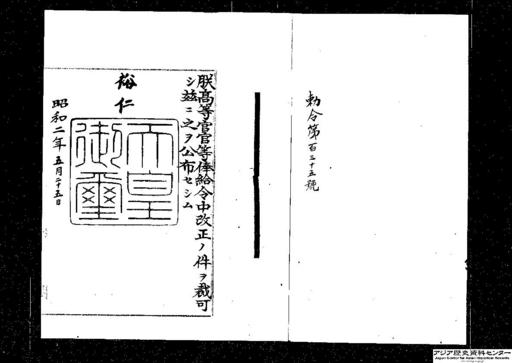 勅令第百三十五號
朕高等官官等俸給令中改正ノ件ヲ裁可
シ茲ニ之ヲ公布セシム
裕仁
天皇
御璽
昭和二年五月二十五日
アジア歴史資料センター
Japan Center for Asian Historical Records